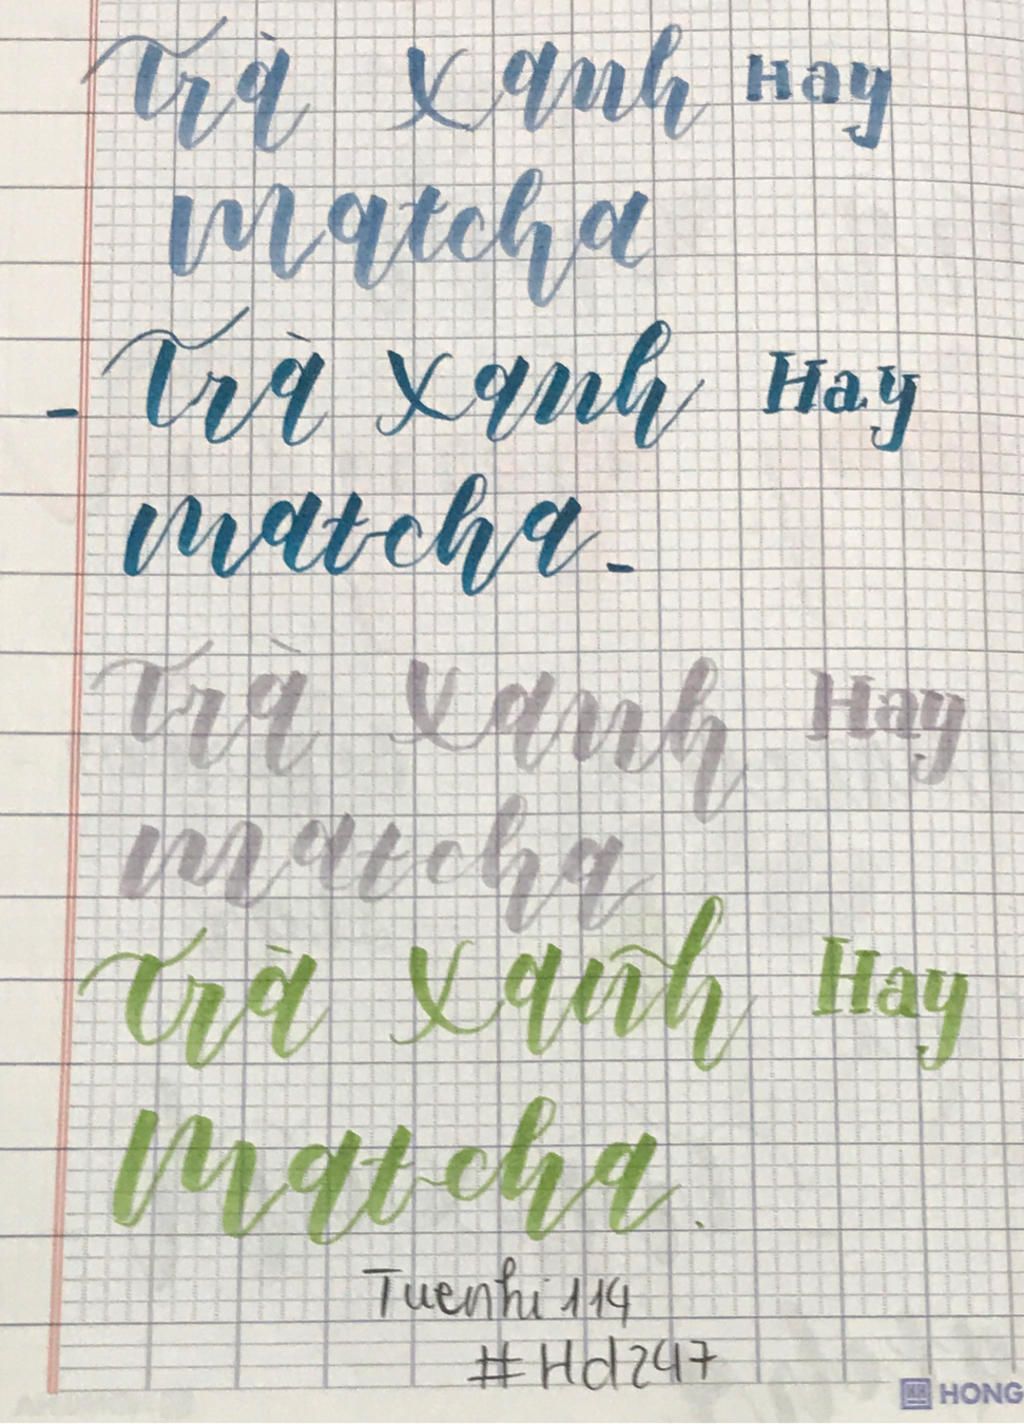 Trà xanh Hay
matcha
- Trà xanh Hay
matcha -
Trà xanh Hay
matcha
Trà xanh Hay
Matcha.
Tuenhi 114
#Hd247
HONG